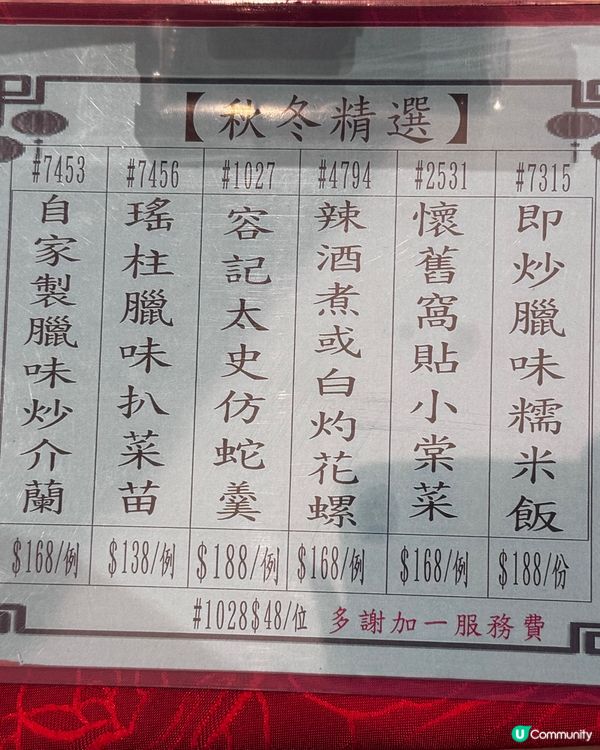 【秋冬精選】
#7453 #7456 #1027 #4794 #2531 #7315
即炒臘味糯米飯
$188/份
懷舊窩貼小棠菜
$168/例
辣酒煮或白灼花螺
$168/例
容記太史仿蛇羹
$188/例
瑤柱臘味扒菜苗
$138/例
自家製臘味炒介蘭
$168/例
#1028$48/位 多謝加一服務費
U Community